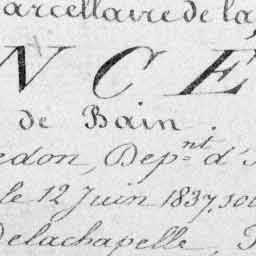 arcellaire de la
NCE
de Bain.
edon, Dep.nt d'I
le 12 Juin 1837, sou
Delachapelle,